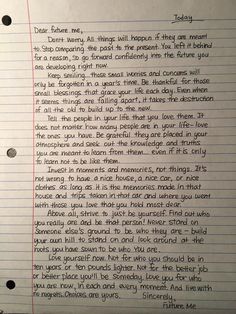 Today
Dear future me,
Don't worry. All things will happen if they are meant to.
Stop comparing the past to the present. You left it behind
for a reason, so go forward confidently into the future you
are developing right now.
Keep smiling. those small worries and concerns will
only be forgotten in a year's time. Be thankful for those
small blessings that grace your life each day. Even when
it seems things are falling apart, it takes the destruction
of all the old to build up to the new.
Tell the people in your life that you love them. It
does not matter how many people are in your life-love
the ones you have. Be grateful they are placed in your
atmosphere and seek out the knowledge and truths
you are meant to learn from them... even if it is only
to learn not to be like them.
Invest in moments and memories, not things. It's
not wrong to have a nice house, a nice car, or nice
clothes as long as it is the memories made in that
house and trips taken in that car and where you went
with those you love that you hold most dear.
Above all, strive to just be yourself. Find out who
you really are and be that person! Never stand on
someone else's ground to be who they are - build
your own hill to stand on and look around at the
roots you have sown to be who You are.
Love yourself now. Not for who you should be in
ten years or ten pounds lighter. Not for the better job
or better place you'll be Someday. Love you for who
you are now, in each and every moment. And live with
no regrets. Choices are yours. Sincerely,
Future Me